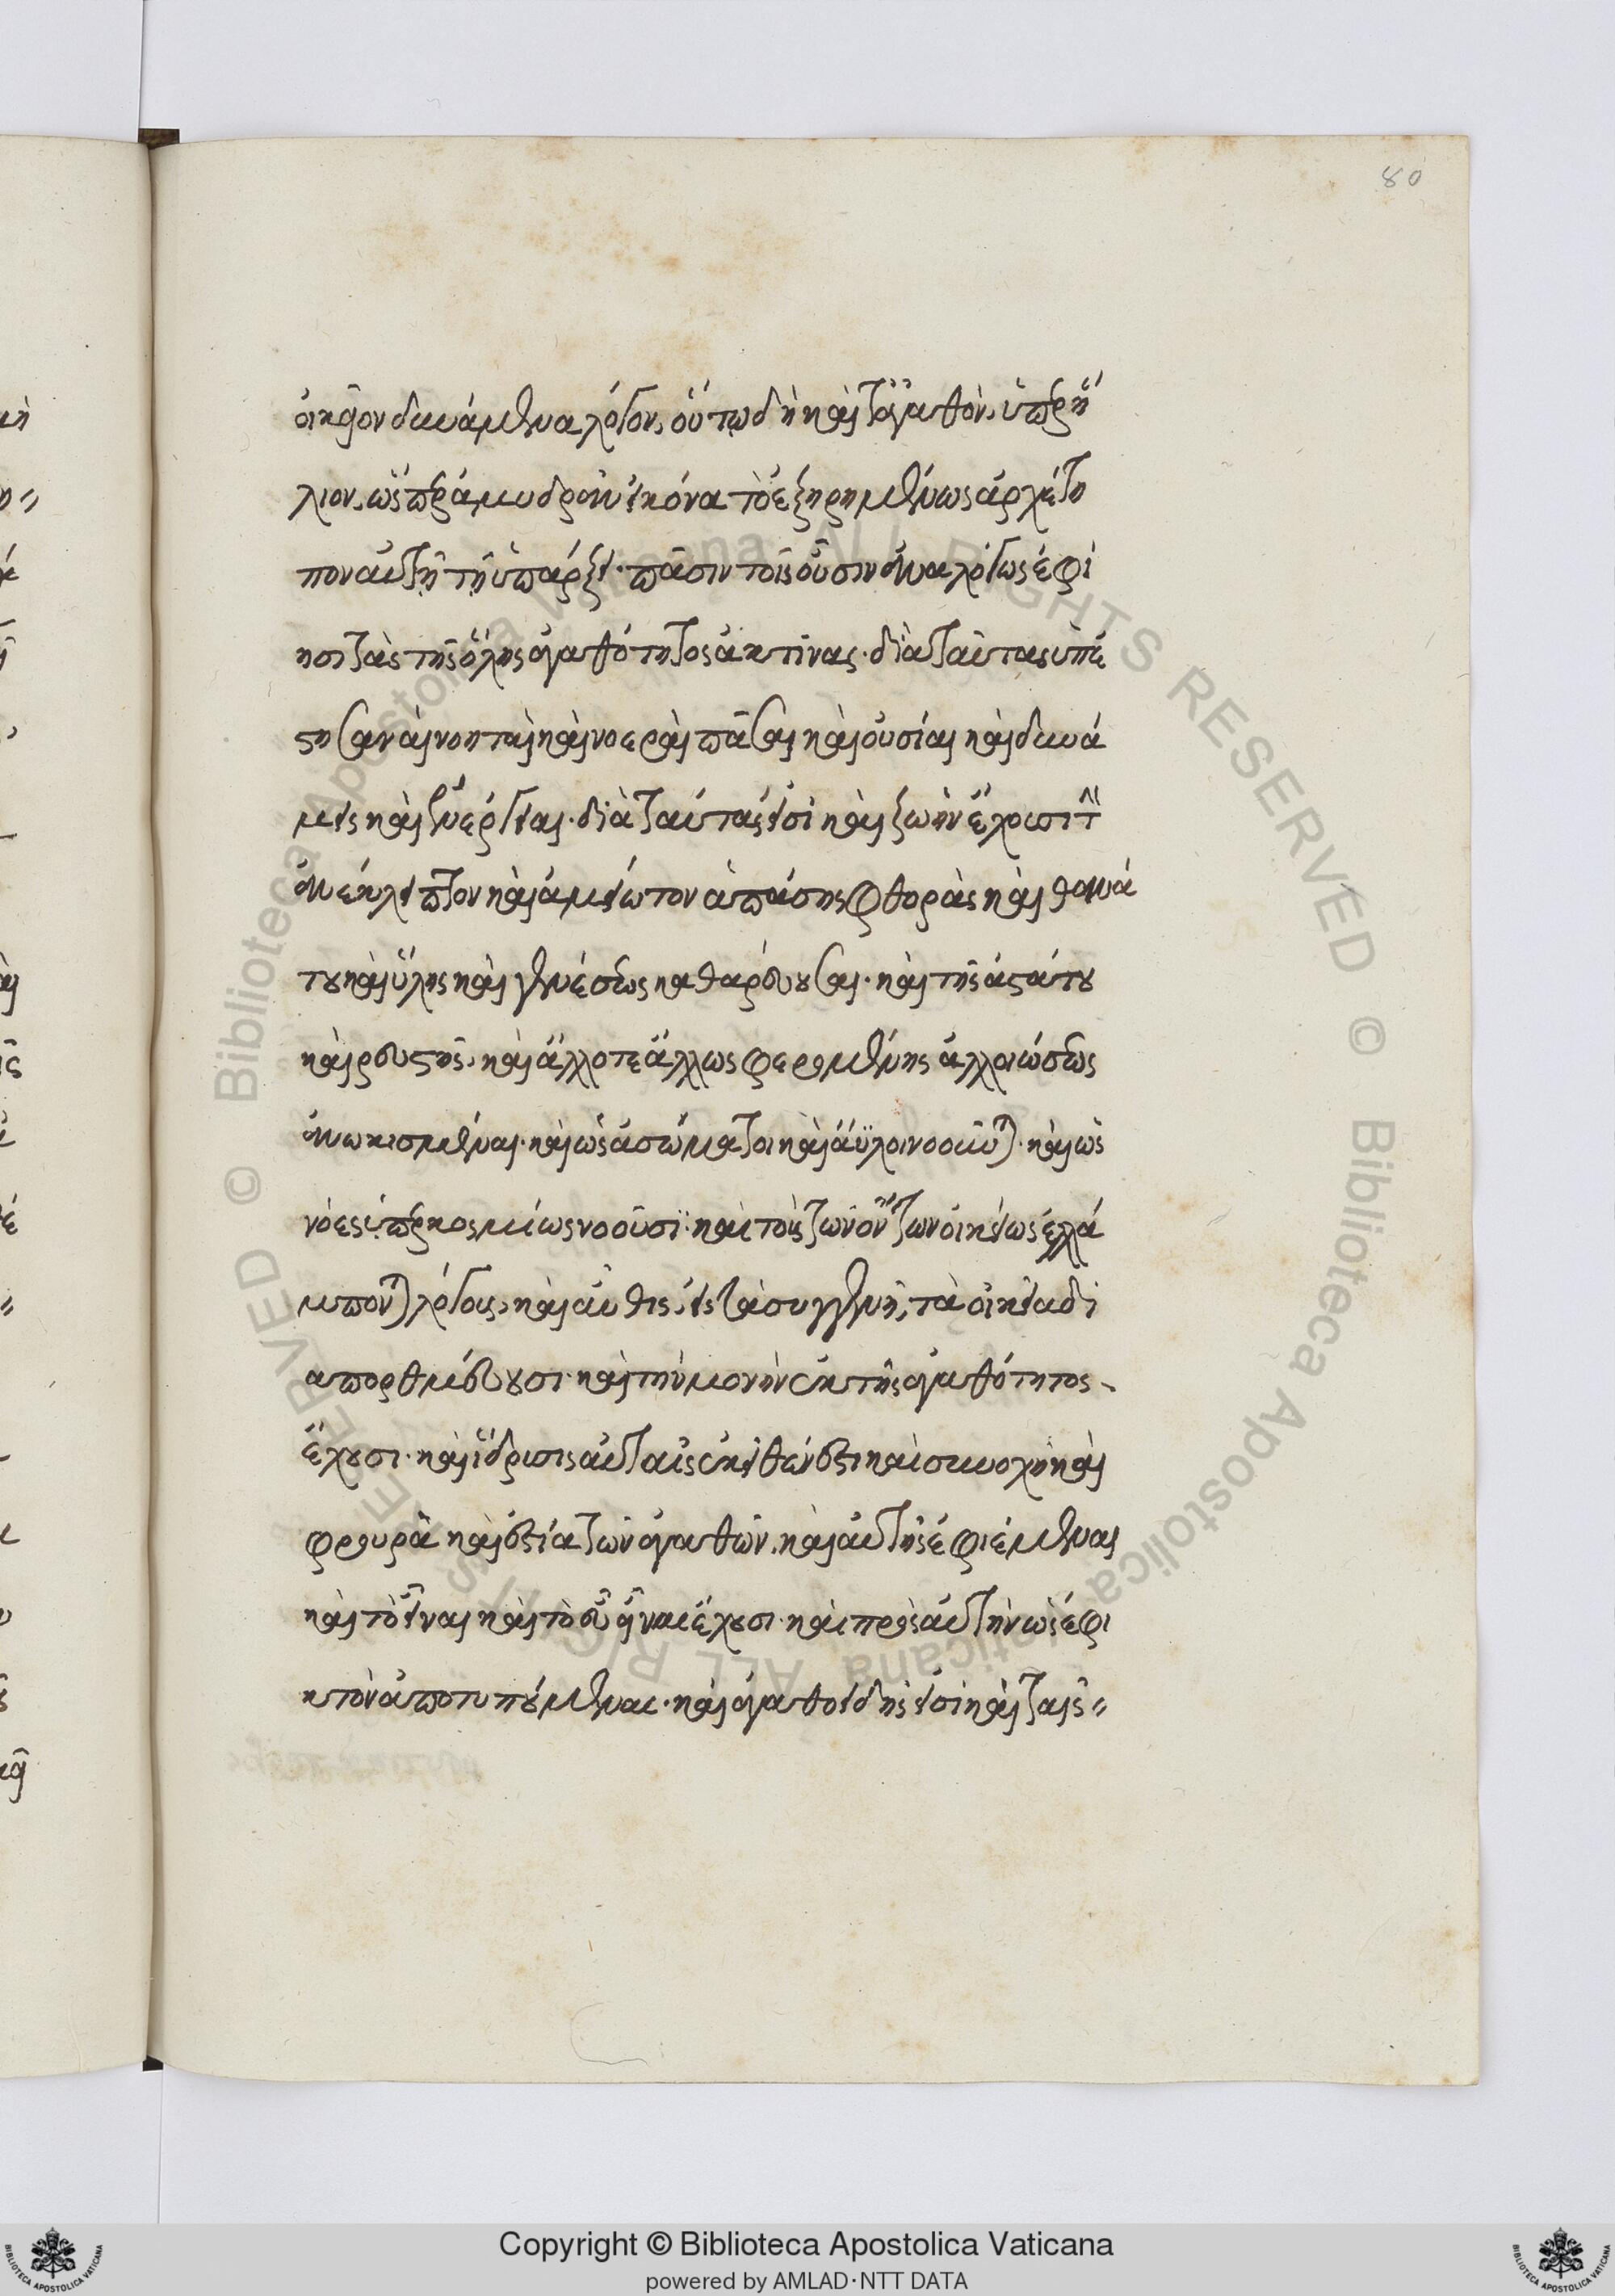 80
οἰκεῖον δυνάμενα λόγον, οὕτω δὴ καὶ τἀγαθὸν, ὑπὲρ ἥ
λιον, ὡς ὑπὲρ ἀμυδρὰν εἰκόνα τὸ ἐξῃρημένως ἀρχέτυ
πον αὐτῇ τῇ ὑπάρξει· πᾶσιν τοῖς οὖσιν ἀναλόγως ἐφί
ησι τὰς τῆς ὅλης ἀγαθότητος ἀκτῖνας· διὰ ταύτας ὑπέ
στησαν αἱ νοηταὶ καὶ νοεραὶ πᾶσαι καὶ οὐσίαι καὶ δυνά
μεις καὶ ἐνέργειαι· διὰ ταύτας εἰσὶ καὶ ζωὴν ἔχουσι τὴν
ἀνέκλειπτον καὶ ἀμείωτον ἁπάσης φθορᾶς καὶ θανά
του καὶ ὕλης καὶ γενέσεως καθαρεύουσαι· καὶ τῆς ἀστάτου
καὶ ῥευστῆς, καὶ ἄλλοτε ἄλλως φερομένης ἀλλοιώσεως
ἀνῳκισμέναι· καὶ ὡς ἀσώματοι καὶ ἄϋλοι νοοῦνται· καὶ ὡς
νόες ὑπερκοσμίως νοοῦσϊ· καὶ τοὺς τῶν ὄντων οἰκείως ἐλλά
μπονται λόγους, καὶ αὖθις, εἰς τὰ συγγενῆ, τὰ οἰκεῖα δι
απορθμεύουσι· καὶ τὴν μονὴν ἐκ τῆς ἀγαθότητος
ἔχουσι· καὶ ἵδρυσις αὐταῖς ἐκεῖθέν ἐστι καὶ συνοχὴ καὶ
φρουρὰ καὶ ἑστία τῶν ἀγαθῶν, καὶ αὐτῆς ἐφιέμεναι
καὶ τὸ εἶναι καὶ τὸ εὖ εἶναι ἔχουσι· καὶ πρὸς αὐτὴν ὡς ἐφι
κτὸν ἀποτυπούμεναι· καὶ ἀγαθοειδεῖς εἰσὶ καὶ ταῖς
Copyright © Biblioteca Apostolica Vaticana
powered by AMLAD·NTT DATA